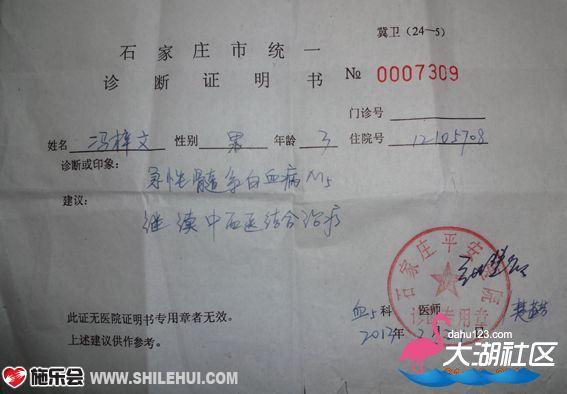 冀卫(24—5)
石家庄市统一
诊断证明书
№ 0007309
门诊号
姓名 冯梓文 性别 男 年龄 3 住院号 12105708
诊断或印象:
急性髓系白血病M5
建议:
继续中西医结合治疗
石家庄平安医院
血5科 医师
2012年
此证无医院证明书专用章者无效。
上述建议供作参考。
施乐会 WWW.SHILEHUI.COM
dahu123.com
大湖社区